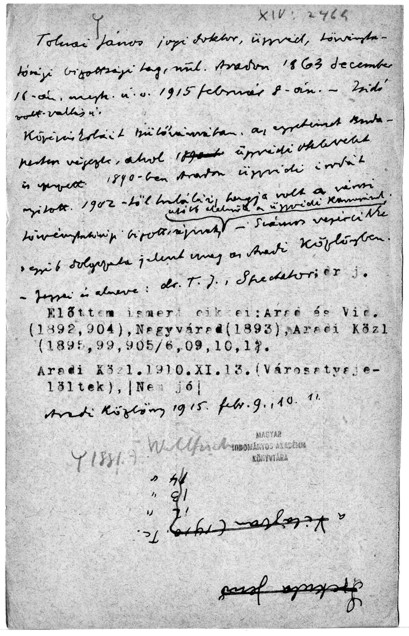 XIV: 2469
Tolnai János jogi doktor, ügyvéd, törvényha-
tósági bizottsági tag, szül. Aradon 1863 december
16-án, megh. u. o. 1915 február 8-án. – Zsidó
volt vallású.
Középiskoláit szülővárosában, az egyetemet Buda-
pesten végezte, ahol ügyvédi oklevelet
is nyert. 1890-ben Aradon ügyvédi irodát
nyitott. 1902-től haláláig tagja volt a városi
utóbb elnöke a ügyvédi kamarának.
törvényhatósági bizottságnak – Számos vezércikke
s egyéb dolgozata jelent meg az Aradi Közlönyben.
– Jegyei és álneve: dr. T. J., Spectator; ér j.
Előttem ismert cikkei: Arad és Vid.
(1892,904), Nagyvárad(1893), Aradi Közl
(1895,99,905/6,09,10,12.
Aradi Közl.1910.XI.13.(Városatyaje-
löltek), |Nem jó|
Aradi Közlöny 1915. febr. 9., 10. 11.
MAGYAR
TUDOMÁNYOS AKADÉMIA
KÖNYVTÁRA
1881.
14 "
13 "
12 "
a Világban (1910 Tc.
Jenő